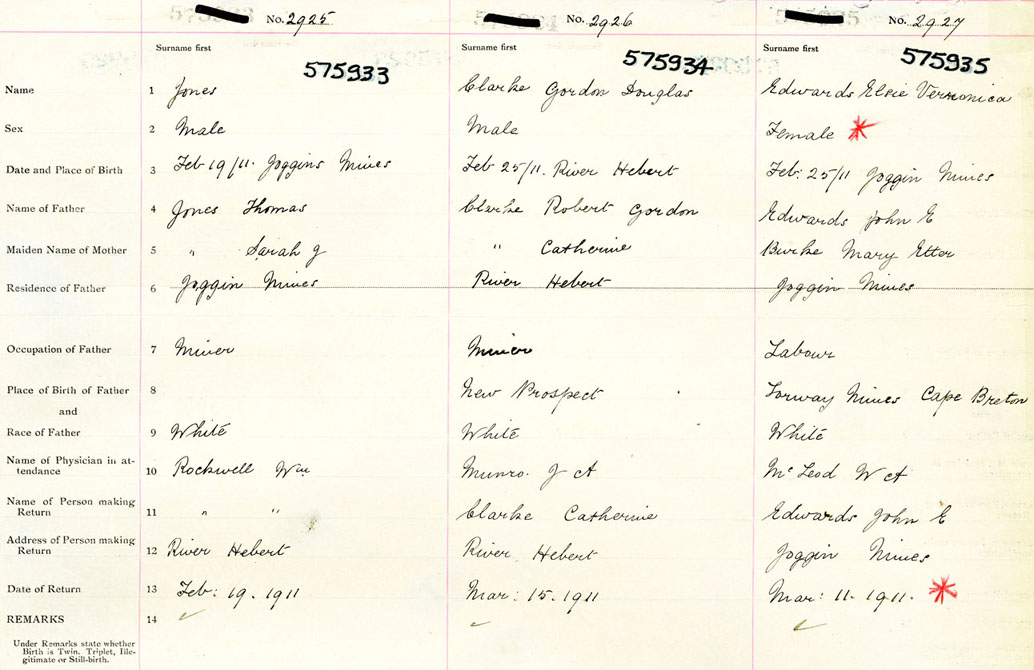 No. 2925 No. 2926 No. 2927
Surname first Surname first Surname first
575933 575934 575935
Name 1 Jones Clarke Gordon Douglas Edwards Elsie Vernonica
Sex 2 Male Male Female *
Date and Place of Birth 3 Feb 19/11. Joggins Mines Feb 25/11. River Hebert Feb: 25/11 Joggin Mines
Name of Father 4 Jones Thomas Clarke Robert Gordon Edwards John E
Maiden Name of Mother 5 " Sarah J " Catherine Burke Mary Etter
Residence of Father 6 Joggin Mines River Hebert Joggin Mines
Occupation of Father 7 Miner Miner Labour
Place of Birth of Father 8 New Prospect Torway Mines Cape Breton
and
Race of Father 9 White White White
Name of Physician in at-
tendance 10 Rockwell Wm Munro. J A McLeod W A
Name of Person making
Return 11 " " Clarke Catherine Edwards John E
Address of Person making
Return 12 River Hebert River Hebert Joggin Mines
Date of Return 13 Feb: 19. 1911 Mar: 15. 1911 Mar: 11. 1911. *
REMARKS 14 ✓ ✓ ✓
Under Remarks state whether
Birth is Twin, Triplet, Ille-
gitimate or Still-birth.